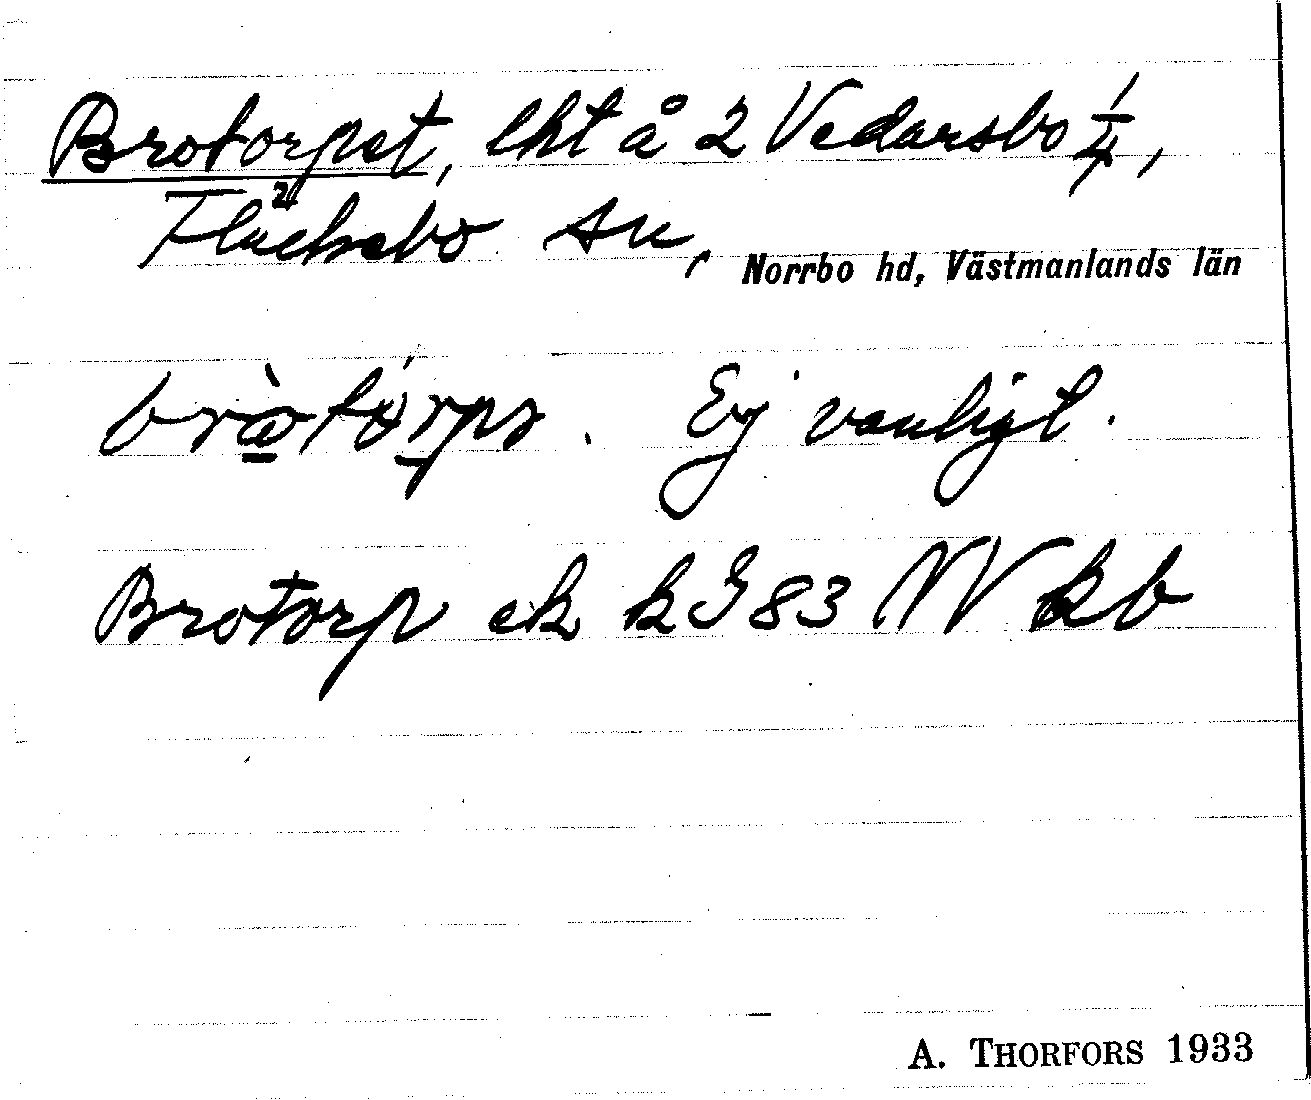 Brotorpet, lht å 2 Vedarsbo 1/4,
Fläckebo sn, Norrbo hd, Västmanlands län
Ej vanligt.
Brotorp ek k 83 NV kb
A. THORFORS 1933